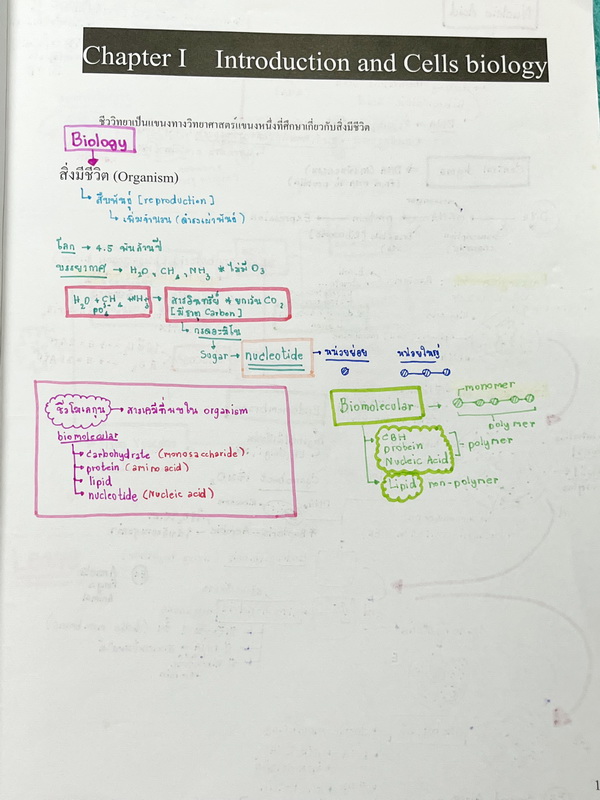 Chapter I Introduction and Cells biology
ชีววิทยาเป็นแขนงทางวิทยาศาสตร์แขนงหนึ่งที่ศึกษาเกี่ยวกับสิ่งมีชีวิต
Biology
สิ่งมีชีวิต (Organism)
สืบพันธุ์ [reproduction]
เพิ่มจำนวน (ดำรงเผ่าพันธุ์)
โลก → 4.5 พันล้านปี
บรรยากาศ → H₂O, CH₄, NH₃ * ไม่มี O₃
H₂O + CH₄ + NH₃ → สารอินทรีย์ * ยกเว้น CO₂
PO₄ [มีธาตุ Carbon]
กรดอะมิโน
Sugar → nucleotide → หน่วยย่อย หน่วยใหญ่
ชีวโมเลกุล → สารเคมีที่พบใน organism
biomolecular
carbohydrate (monosaccharide)
protein (amino acid)
lipid
nucleotide (Nucleic acid)
monomer
Biomolecular →
polymer
CBH
protein
Nucleic Acid
polymer
Lipid non-polymer
1